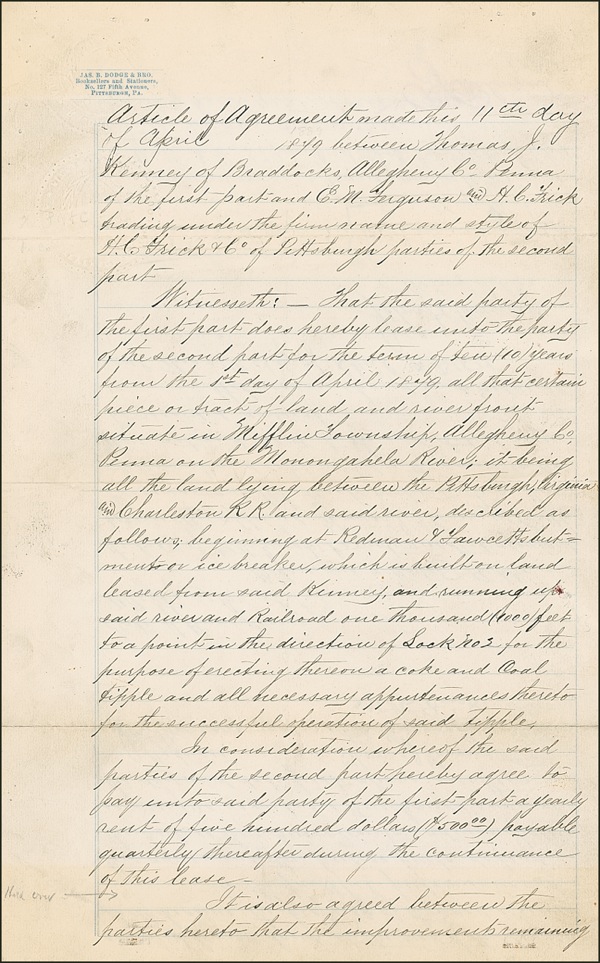 JAS. B. DODGE & BRO.
Booksellers and Stationers,
No. 127 Fifth Avenue,
PITTSBURGH, PA.
Article of Agreement made this 11th day
of April 1879 between Thomas, J.
Kenney of Braddocks, Allegheny Co Penna
of the first part and E. M. Ferguson and H. C. Frick
trading under the firm name and style of
H. C. Frick & Co of Pittsburgh parties of the second
part
Witnesseth: — That the said party of
the first part does hereby lease unto the party
of the second part for the term of ten (10) years
from the 1st day of April 1879, all that certain
piece or tract of land and river front
situate in Mifflin Township, Allegheny Co,
Penna on the Monongahela River; it being
all the land lying between the Pittsburgh, Virginia
and Charleston R.R. and said river, described as
follows; beginning at Redman & Fawcetts but=
ments or ice breaker, which is built on land
leased from said Kinney, and running up
said river and Railroad one thousand (1000) feet
to a point in the direction of Lock No 2 for the
purpose of erecting thereon a coke and Coal
tipple and all necessary appurtenances thereto
for the successful operation of said tipple,
In consideration whereof the said
parties of the second part hereby agree to
pay unto said party of the first part a yearly
rent of five hundred dollars ($500.00) payable
quarterly thereafter during the continuance
of this lease –
It is also agreed between the
parties hereto that the improvements remaining